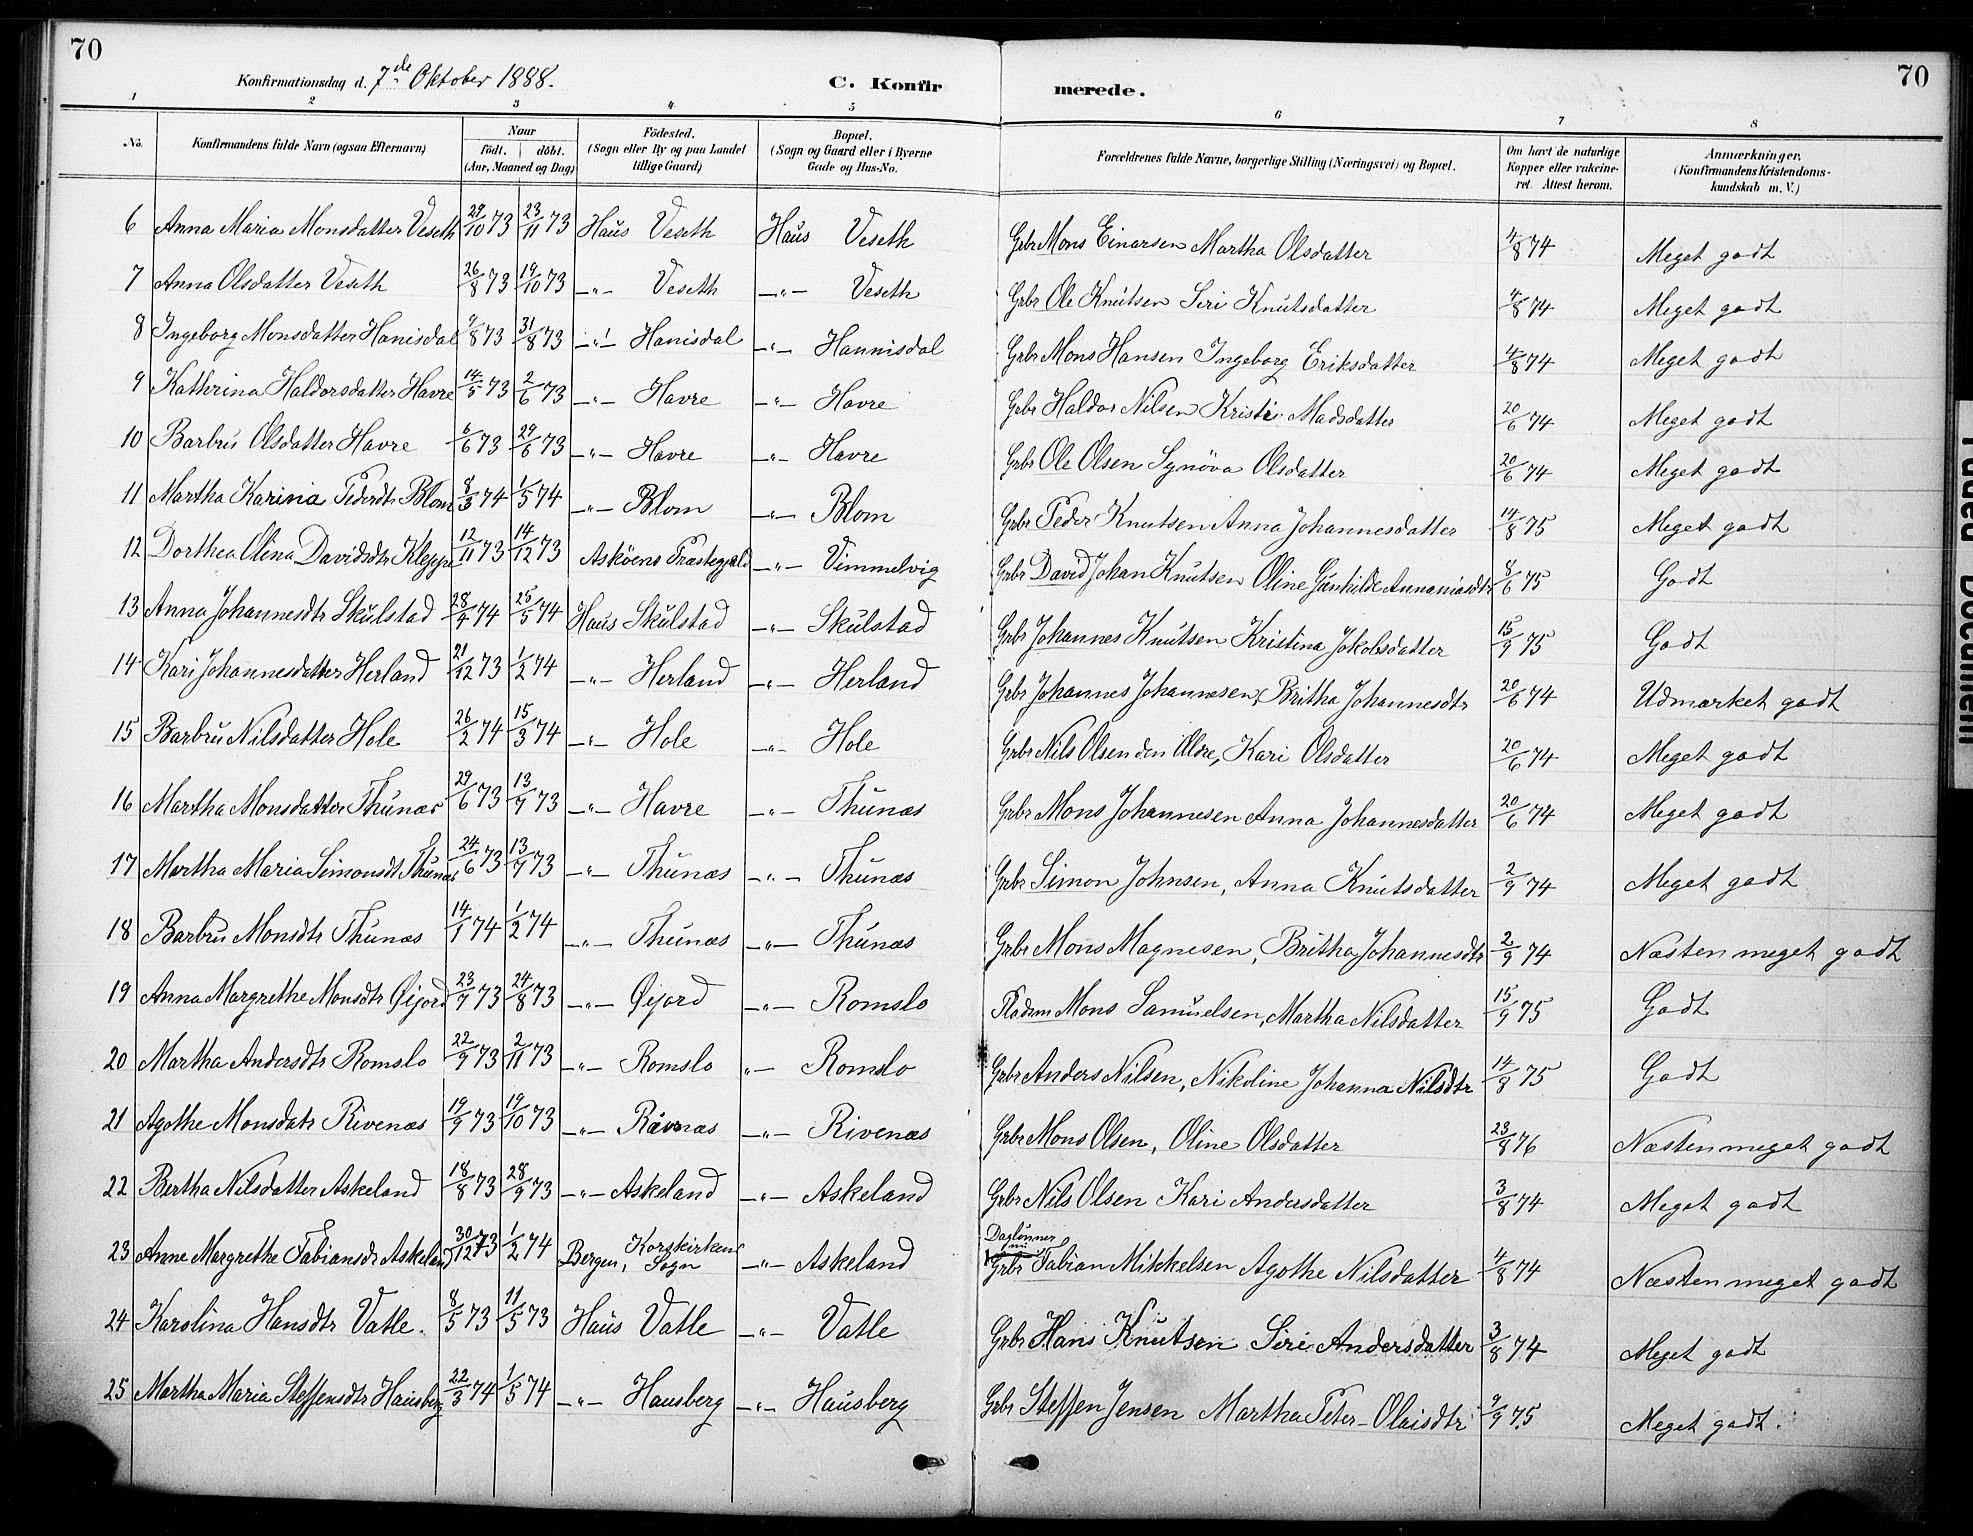 70
70
Konfirmationsdag d. 7de Oktober 1888.
C. Konfirmerede.
1 2 3 4 5 6 7 8
No. | Konfirmandens fulde Navn (ogsaa Efternavn) | Naar födt. | döbt. (Aar, Maaned og Dag) | Födested. (Sogn eller By og paa Landet tillige Gaard) | Bopæl. (Sogn og Gaard eller i Byerne Gade og Hus-No. | Forældrenes fulde Navne, borgerlige Stilling (Næringsvei) og Bopæl. | Om havt de naturlige Kopper eller vakcineret. Attest herom. | Anmærkninger. (Konfirmandens Kristendomskundskab m. V.)
6 Anna Maria Monsdatter Veseth 29/10 73 23/11 73 Haus Veseth Haus Veseth Gbr Mons Einarsen Martha Olsdatter 4/8 74 Meget godt
7 Anna Olsdatter Veseth 26/8 73 19/10 73 -"- Veseth -"- Veseth Gbr Ole Knutsen Seri Knutsdatter 4/8 74 Meget godt
8 Ingeborg Monsdatter Hanisdal 7/8 73 31/8 73 -"- Hanisdal -"- Hannisdal Gbr Mons Hansen Ingeborg Eriksdatter 4/8 74 Meget godt
9 Kathrina Haldorsdatter Havre 14/5 73 2/6 73 -"- Havre -"- Havre Gbr Haldor Nilsen Kristi Madsdatter 20/6 74 Meget godt
10 Barbru Olsdatter Havre 6/6 73 29/6 73 -"- Havre -"- Havre Gbr Ole Olsen Synöva Olsdatter 20/6 74 Meget godt
11 Martha Karina Pedersdtr Blom 8/3 74 1/5 74 -"- Blom -"- Blom Gbr Peder Knutsen Anna Johannesdatter 14/8 75 Meget godt
12 Dorthea Olina Davidsdtr Kleppe 12/11 73 14/12 73 Asköens Præstegjeld -"- Vimmelvig Gbr David Johan Knutsen Oline Gunhilde Annaniasdtr 8/6 75 Godt
13 Anna Johannesdtr Skulstad 28/4 74 25/5 74 Haus Skulstad -"- Skulstad Gbr Johannes Knutsen Kristina Jakobsdatter 15/9 75 Godt
14 Kari Johannesdatter Herland 21/12 73 1/2 74 -"- Herland -"- Herland Gbr Johannes Johannesen, Britha Johannesdtr 20/6 74 Udmærket godt
15 Barbru Nilsdatter Hole 26/2 74 15/3 74 -"- Hole -"- Hole Gbr Nils Olsen den Ældre, Kari Olsdatter 20/6 74 Meget godt
16 Martha Monsdatter Thunæs 29/6 73 13/7 73 -"- Havre -"- Thunæs Gbr Mons Johannesen Anna Johannesdatter 20/6 74 Meget godt
17 Martha Maria Simonsdt Thunæs 24/6 73 13/7 73 -"- Thunæs -"- Thunæs Gbr Simon Johnsen, Anna Knutsdatter 2/9 74 Meget godt
18 Barbru Monsdtr Thunæs 14/1 74 1/2 74 -"- Thunæs -"- Thunæs Gbr Mons Magnesen, Britha Johannesdtr 2/9 74 Næsten meget godt
19 Anna Margrethe Monsdtr Øijord 23/7 73 24/8 73 -"- Øijord -"- Romslo Pladsm Mons Samuelsen, Martha Nilsdatter 15/9 75 Godt
20 Martha Andersdtr Romslo 22/9 73 2/11 73 -"- Romslo "- Romslo Gbr Anders Nilsen, Nikoline Johanna Nilsdtr 14/8 75 Godt
21 Agothe Monsdatr Rivenæs 19/9 73 19/10 73 -"- Rævnæs -"- Rivenæs Gbr Mons Olsen, Oline Olsdatter 23/8 76 Næsten meget godt
22 Bertha Nilsdatter Askeland 18/8 73 28/9 73 -"- Askeland -"- Askeland Gbr Nils Olsen Kari Andersdatter 3/8 74 Meget godt
23 Anne Margrethe Fabiansdr Askeland 30/12 73 1/2 74 Bergen, Korskirkens Sogn -"- Askeland Daglönner Gbr Fabian Mikkelsen Agothe Nilsdatter 4/8 74 Næsten meget godt
24 Karolina Hansdtr Vatle. 8/5 73 11/5 73 Haus Vatle -"- Vatle Gbr Hans Knutsen Siri Andersdatter 3/8 74 Meget godt
25 Martha Maria Steffensdtr Hausberg 22/3 74 1/5 74 -"- Hausberg -"- Hausberg Gbr Steffen Jensen Martha Peter-Olaisdtr 7/9 75 Meget godt.